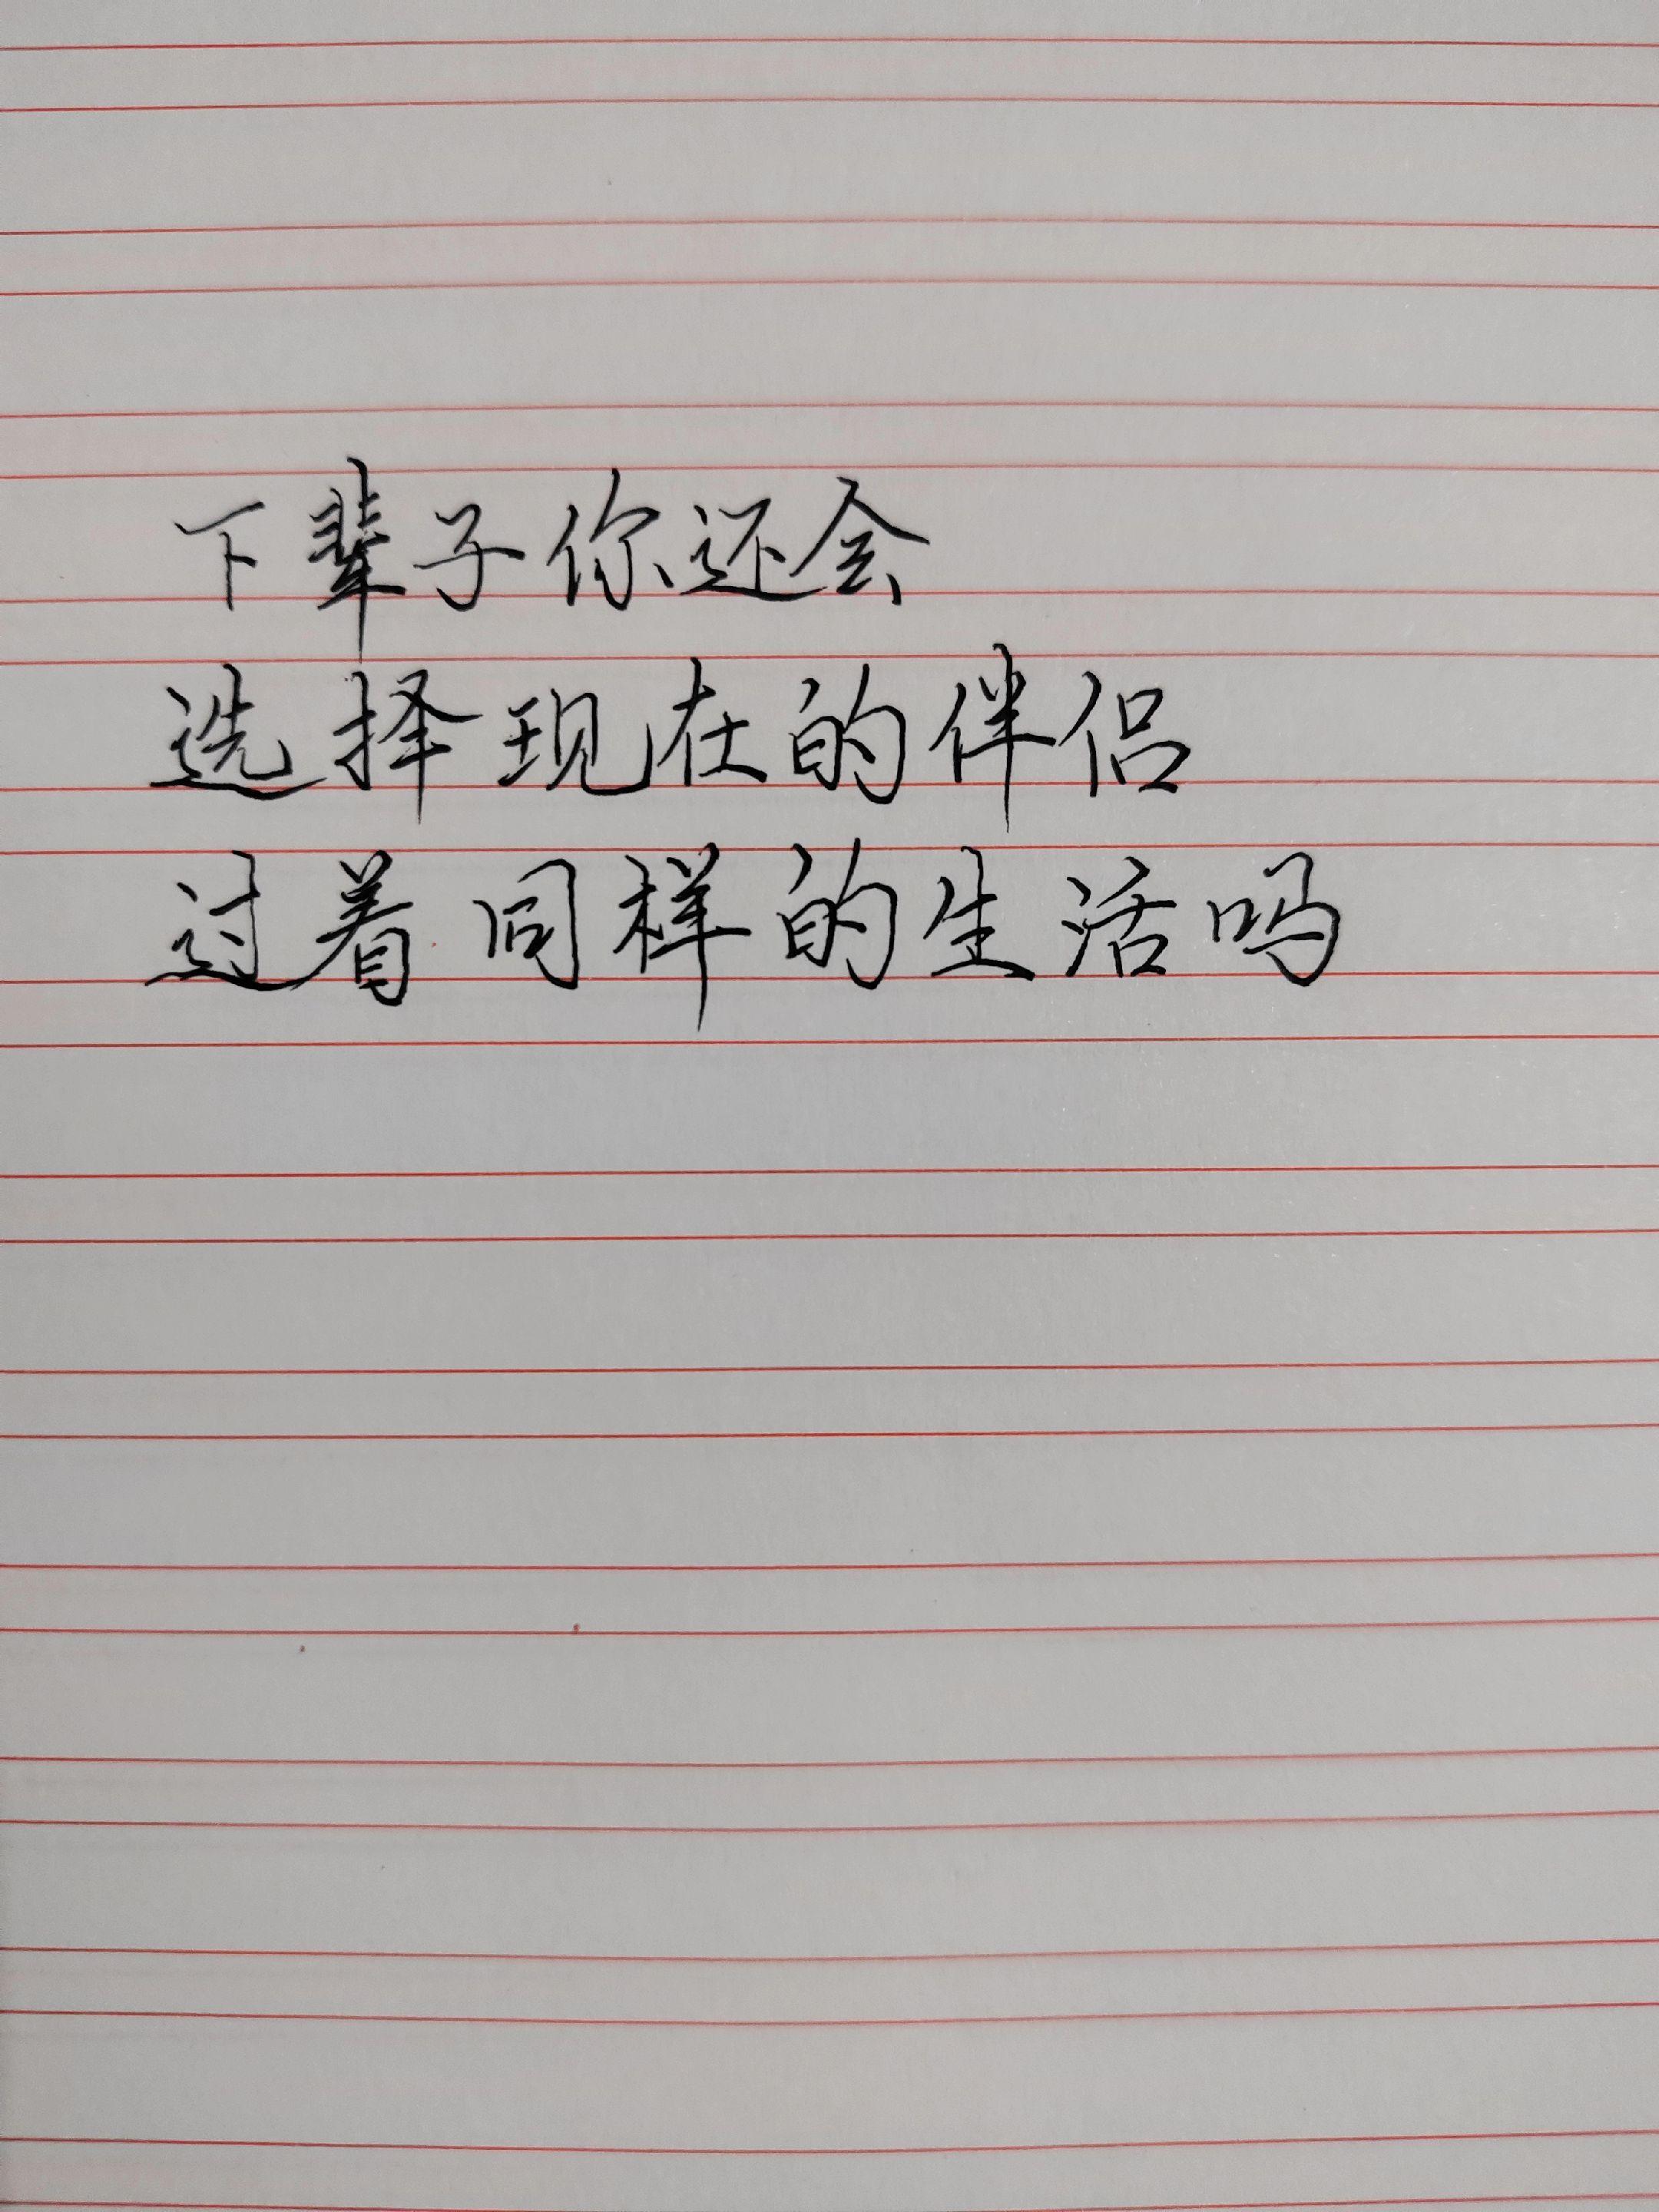 下辈子你还会
选择现在的伴侣
过着同样的生活吗